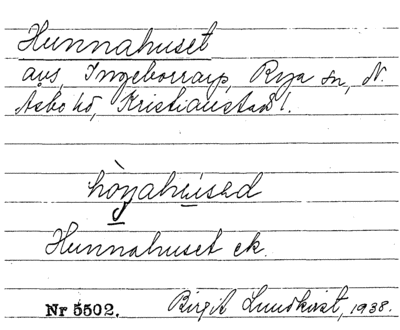 Hunnahuset
avs, Ingeborrarp, Rya sn, N.
Åsbo hd, Kristianstads l.
Hunnahuset ek.
Nr 5502. Birgit Lundkvist, 1938.